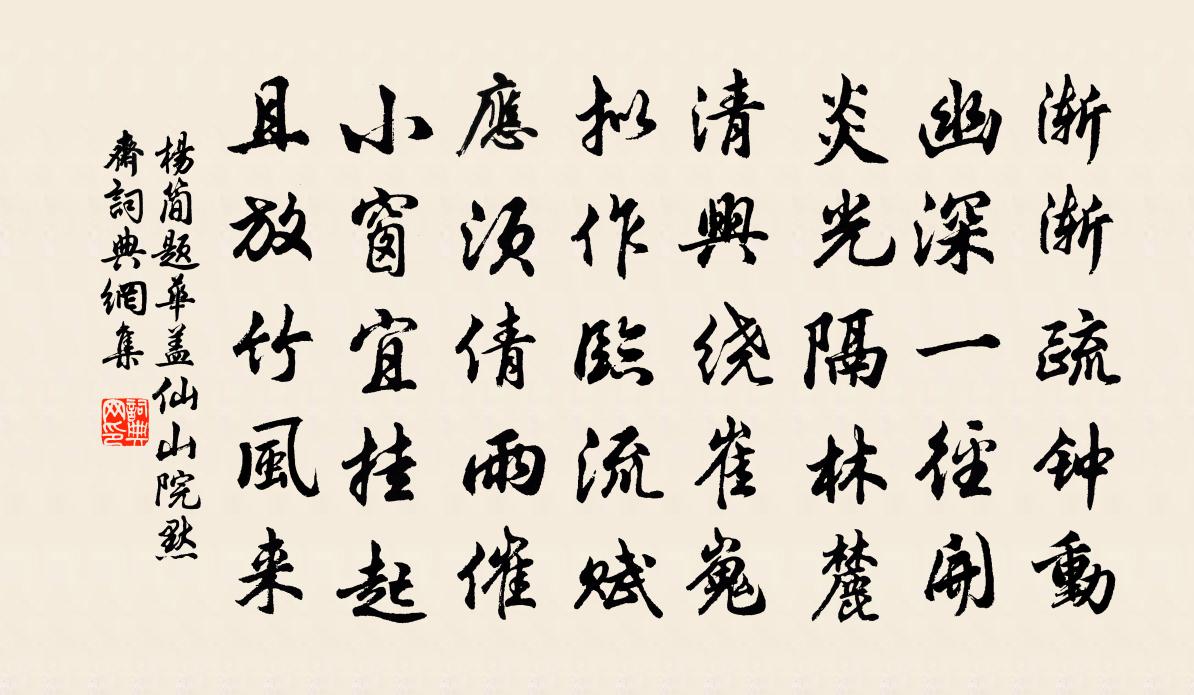 渐渐疏钟動
幽深一徑開
炎光隔林麓
清興绕崔嵬
拟作臨流赋
應须倩雨催
小窗宜挂起
且放竹風来
楊简题華盖仙山院默
齋詞典網集
詞典
网印